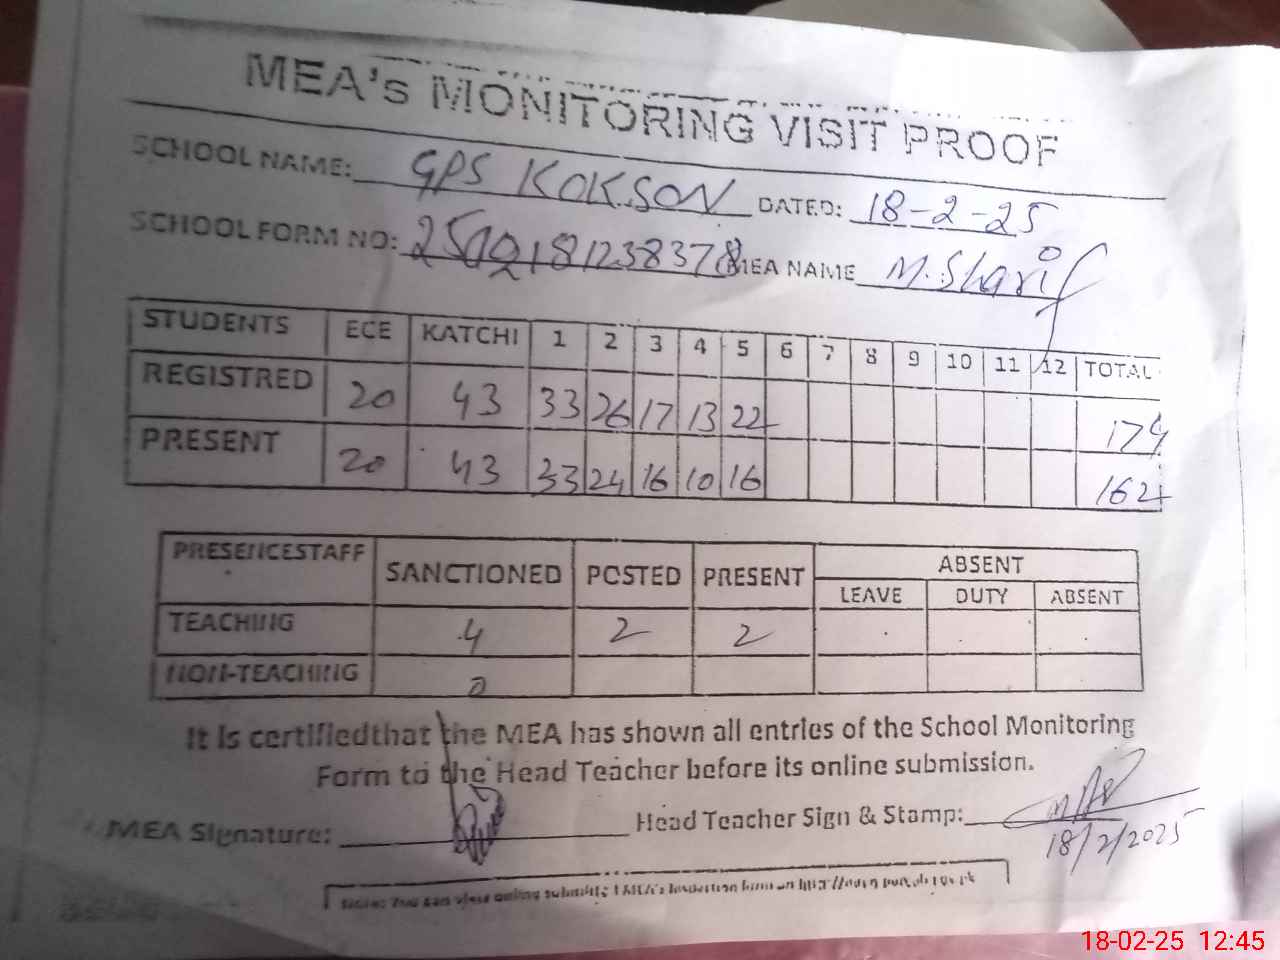 MEA's MONITORING VISIT PROOF
SCHOOL NAME: GPS KOKSON DATED: 18-2-25
SCHOOL FORM NO: MEA NAME M. Sharif
STUDENTS ECE KATCHI 1 2 3 4 5 6 7 8 9 10 11 12 TOTAL
REGISTRED 20 43 33 26 17 13 22 174
PRESENT 20 43 33 24 16 10 16 162
PRESENCESTAFF SANCTIONED POSTED PRESENT ABSENT
LEAVE DUTY ABSENT
TEACHING 4 2 2
NON-TEACHING 0
It is certifiedthat the MEA has shown all entries of the School Monitoring
Form to the Head Teacher before its online submission.
MEA Signature: Head Teacher Sign & Stamp:
18/2/2025
18-02-25 12:45